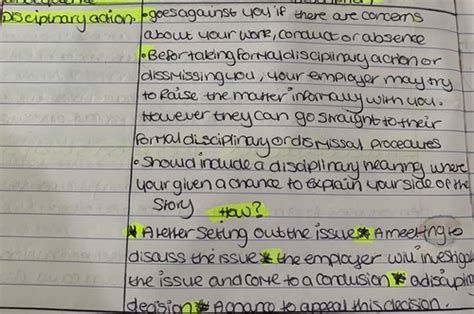 Disciplinary action. •goes against you if there are concerns
about your work, conduct or absence
•Befor taking formal disciplinary action or
dissmissing you, your employer may try
to raise the matter informally with you.
However they can go straight to their
formal disciplinary or dismissal procedures
•Should include a disciplinary hearing where
your given a chance to explain your side of the
story How?
* A letter setting out the issue * A meeting to
discuss the issue * the employer will investiga
the issue and come to a conclusion * a disciplin
decision * A chance to appeal this decision.